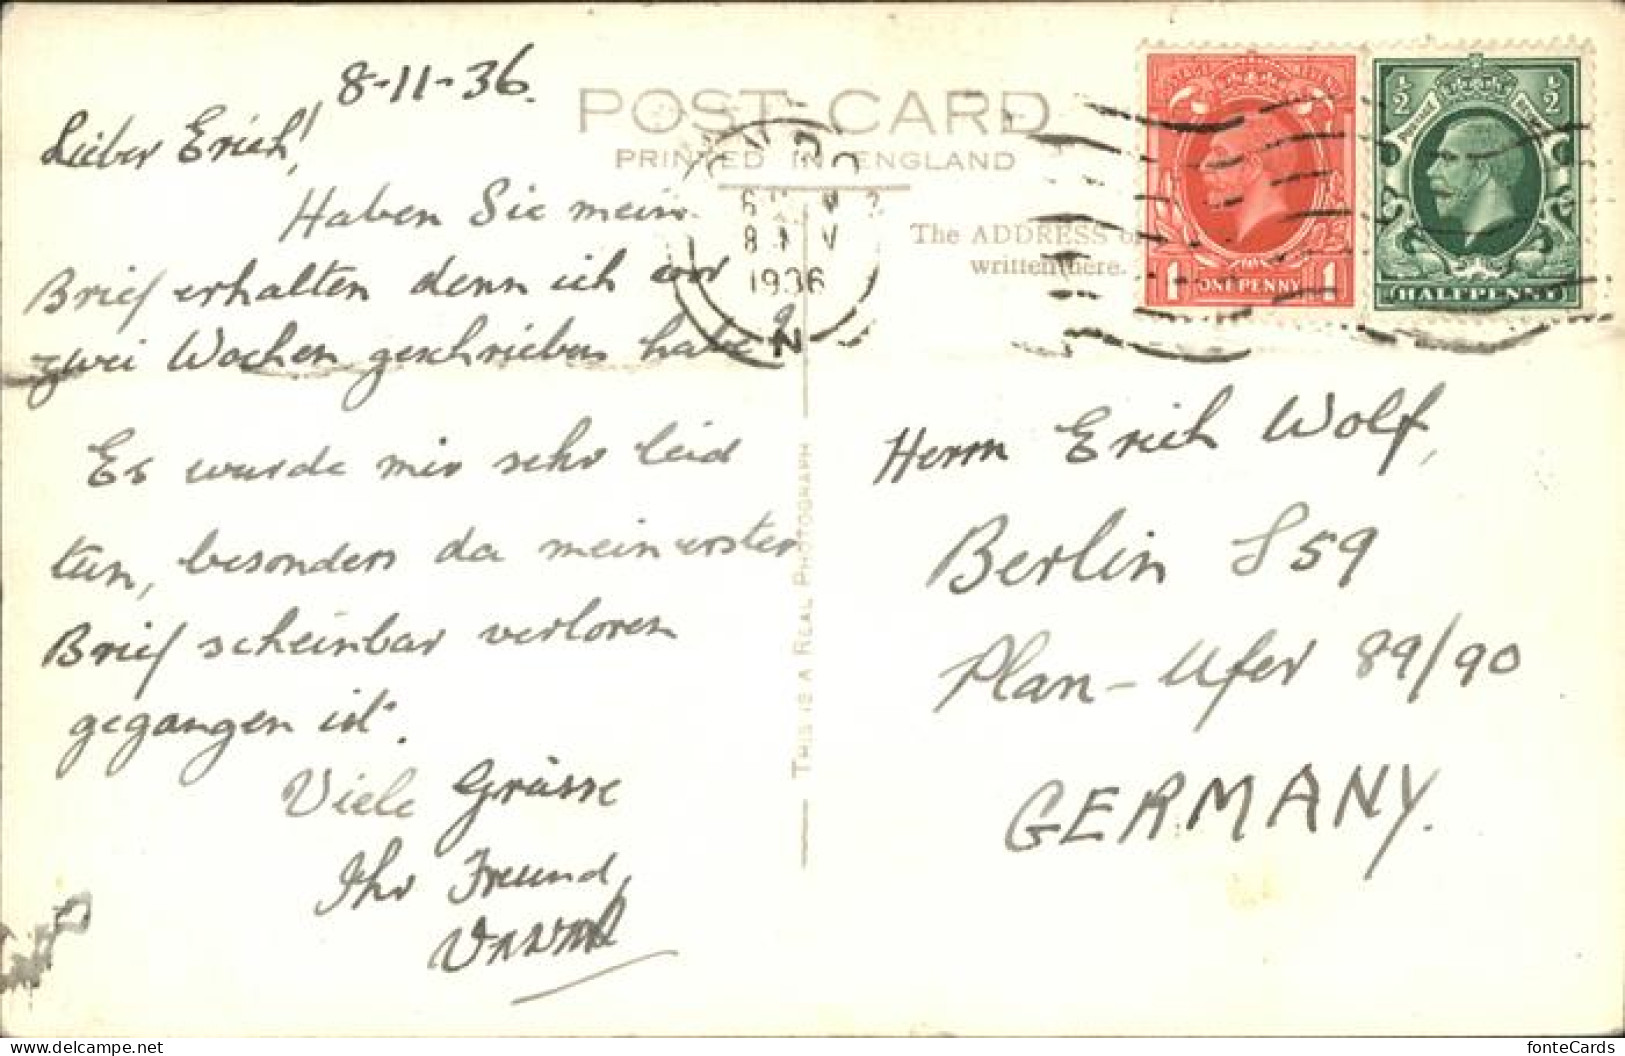 8-11-36.
Lieber Erich!
Haben Sie mein
Brief erhalten denn ich vor
zwei Wochen geschrieben habe
Es wurde mir sehr leid
tun, besonders da mein erster
Brief scheinbar verloren
gegangen ist.
Viele Grüsse
Ihr Freund,
POST CARD
PRINTED IN ENGLAND
The ADDRESS
written here.
8 NOV
1936
POSTAGE REVENUE
1 ONE PENNY 1
½ ½
POSTAGE REVENUE
HALFPENNY
THIS IS A REAL PHOTOGRAPH
Herrn Erich Wolf,
Berlin S59
Plan-Ufer 89/90
GERMANY.
fonteCards
www.delcampe.net